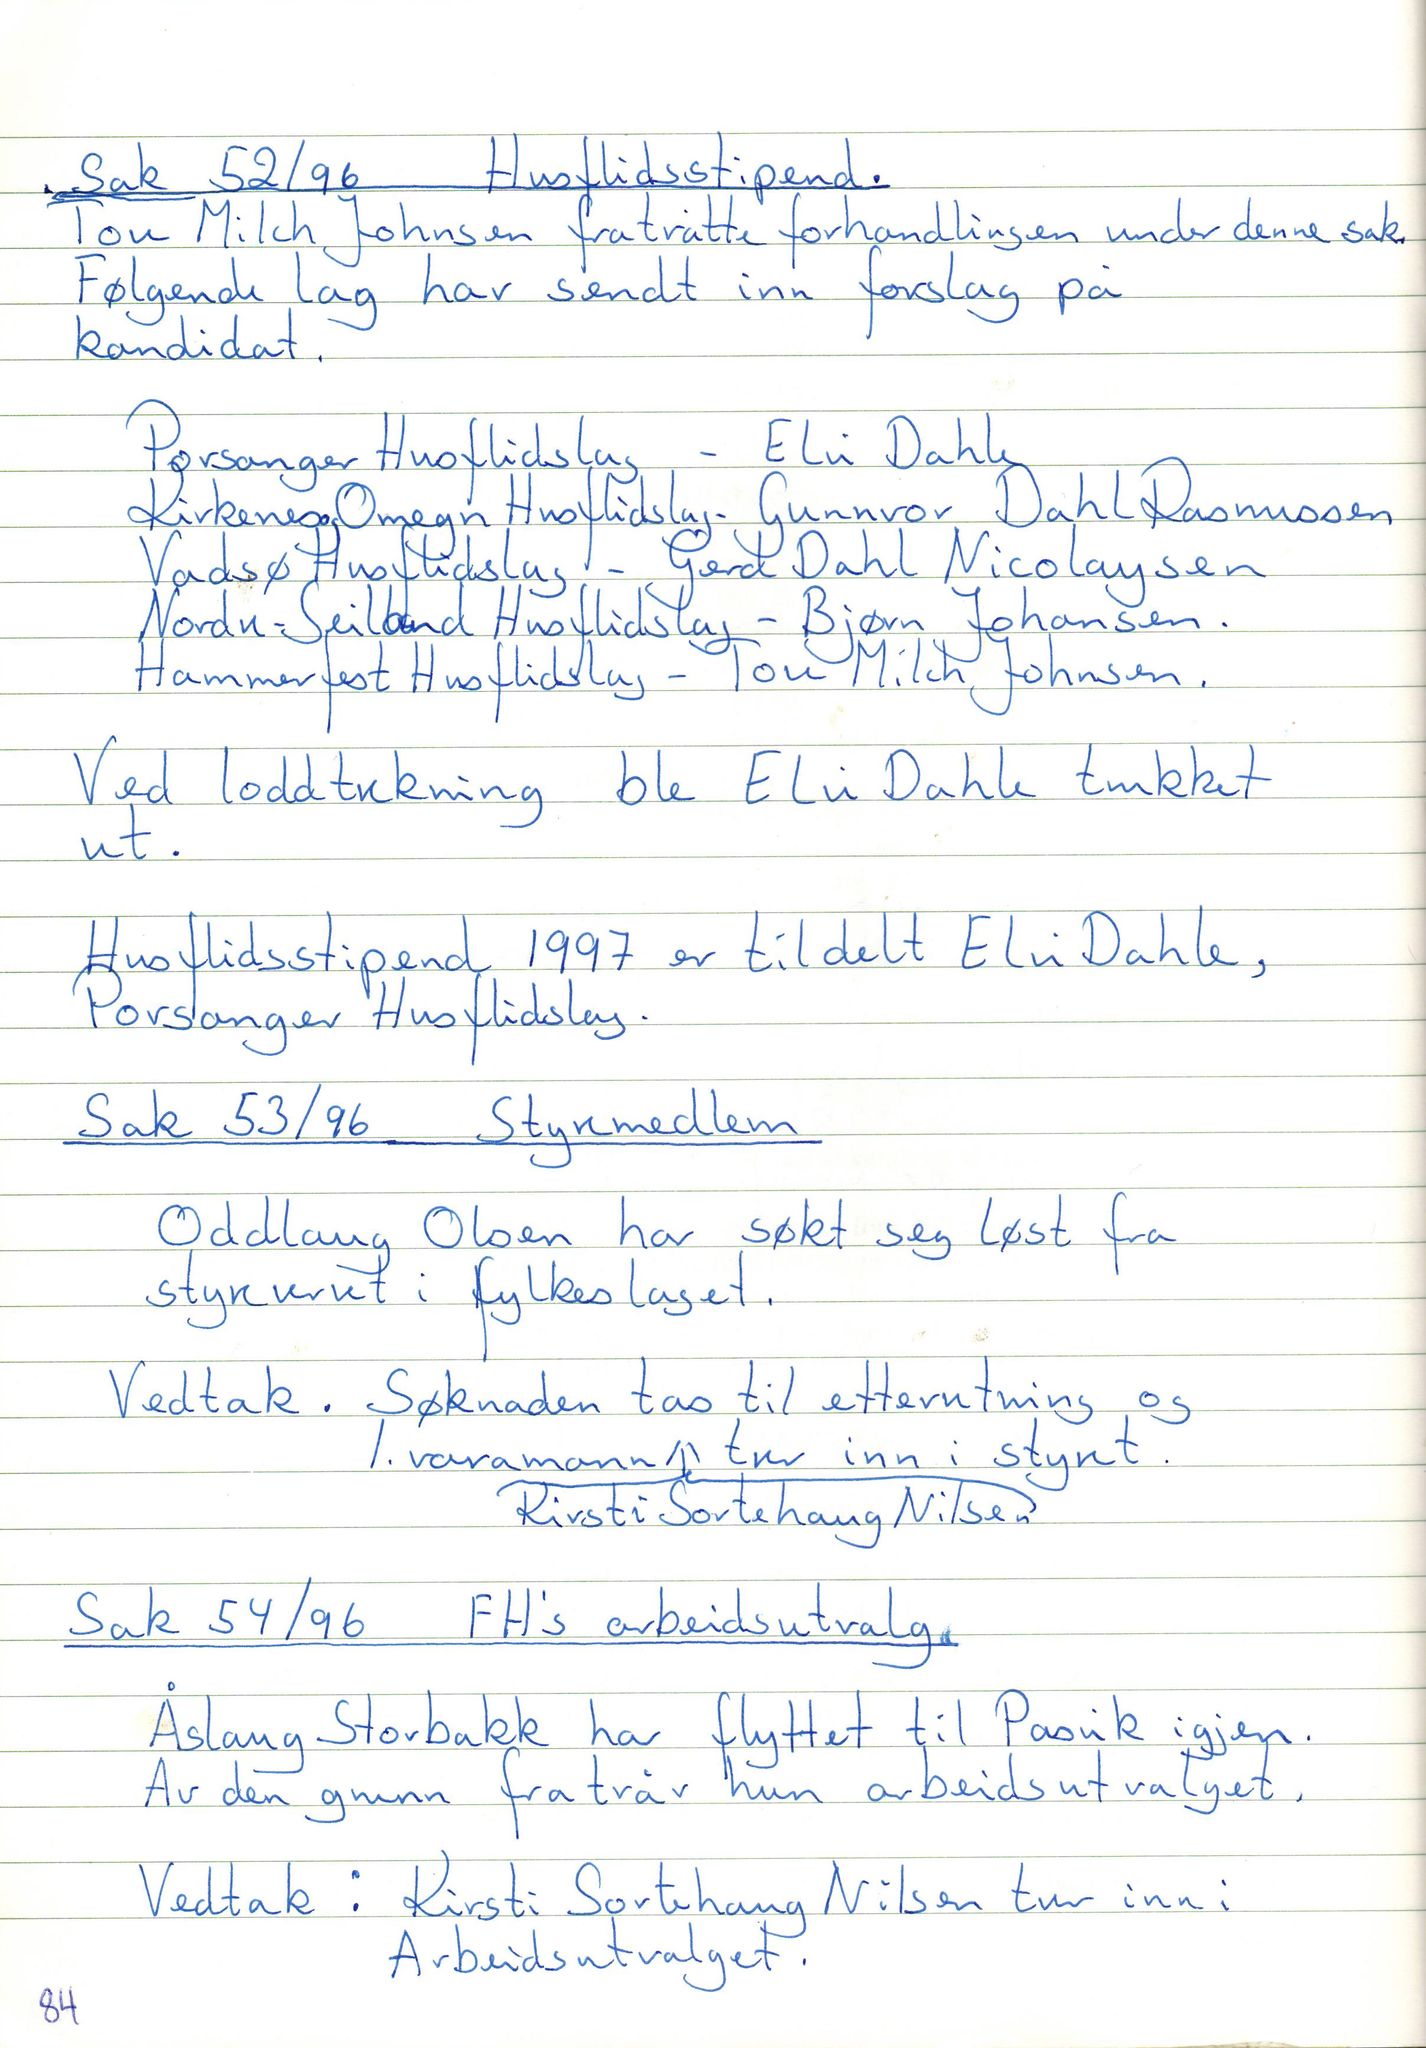 Sak 52/96 Husflidsstipend.
Tove Milch Johnsen fratrådte forhandlingen under denne sak.
Følgende lag har sendt inn forslag på
kandidat.
Porsanger Husflidslag - Elii Dahle
Kirkenes og Omegn Husflidslag - Gunnvor Dahl Rasmussen
Vadsø Husflidslag - Gerd Dahl Nicolaysen
Nordre-Seiland Husflidslag - Bjørn Johansen.
Hammerfest Husflidslag - Tove Milch Johnsen.
Ved loddtrekning ble Elii Dahle trukket
ut.
Husflidsstipend 1997 er tildelt Elii Dahle,
Porsanger Husflidslag.
Sak 53/96 Styremedlem
Oddlaug Olsen har søkt seg løst fra
styrevervet i fylkeslaget.
Vedtak. Søknaden tas til etterretning og
1. varamann trer inn i styret.
Kirsti Sortehaug Nilsen
Sak 54/96 FH's arbeidsutvalg.
Åslaug Storbakk har flyttet til Pasvik igjen.
Av den grunn fratrår hun arbeidsutvalget.
Vedtak : Kirsti Sortehaug Nilsen trer inn i
Arbeidsutvalget.
84